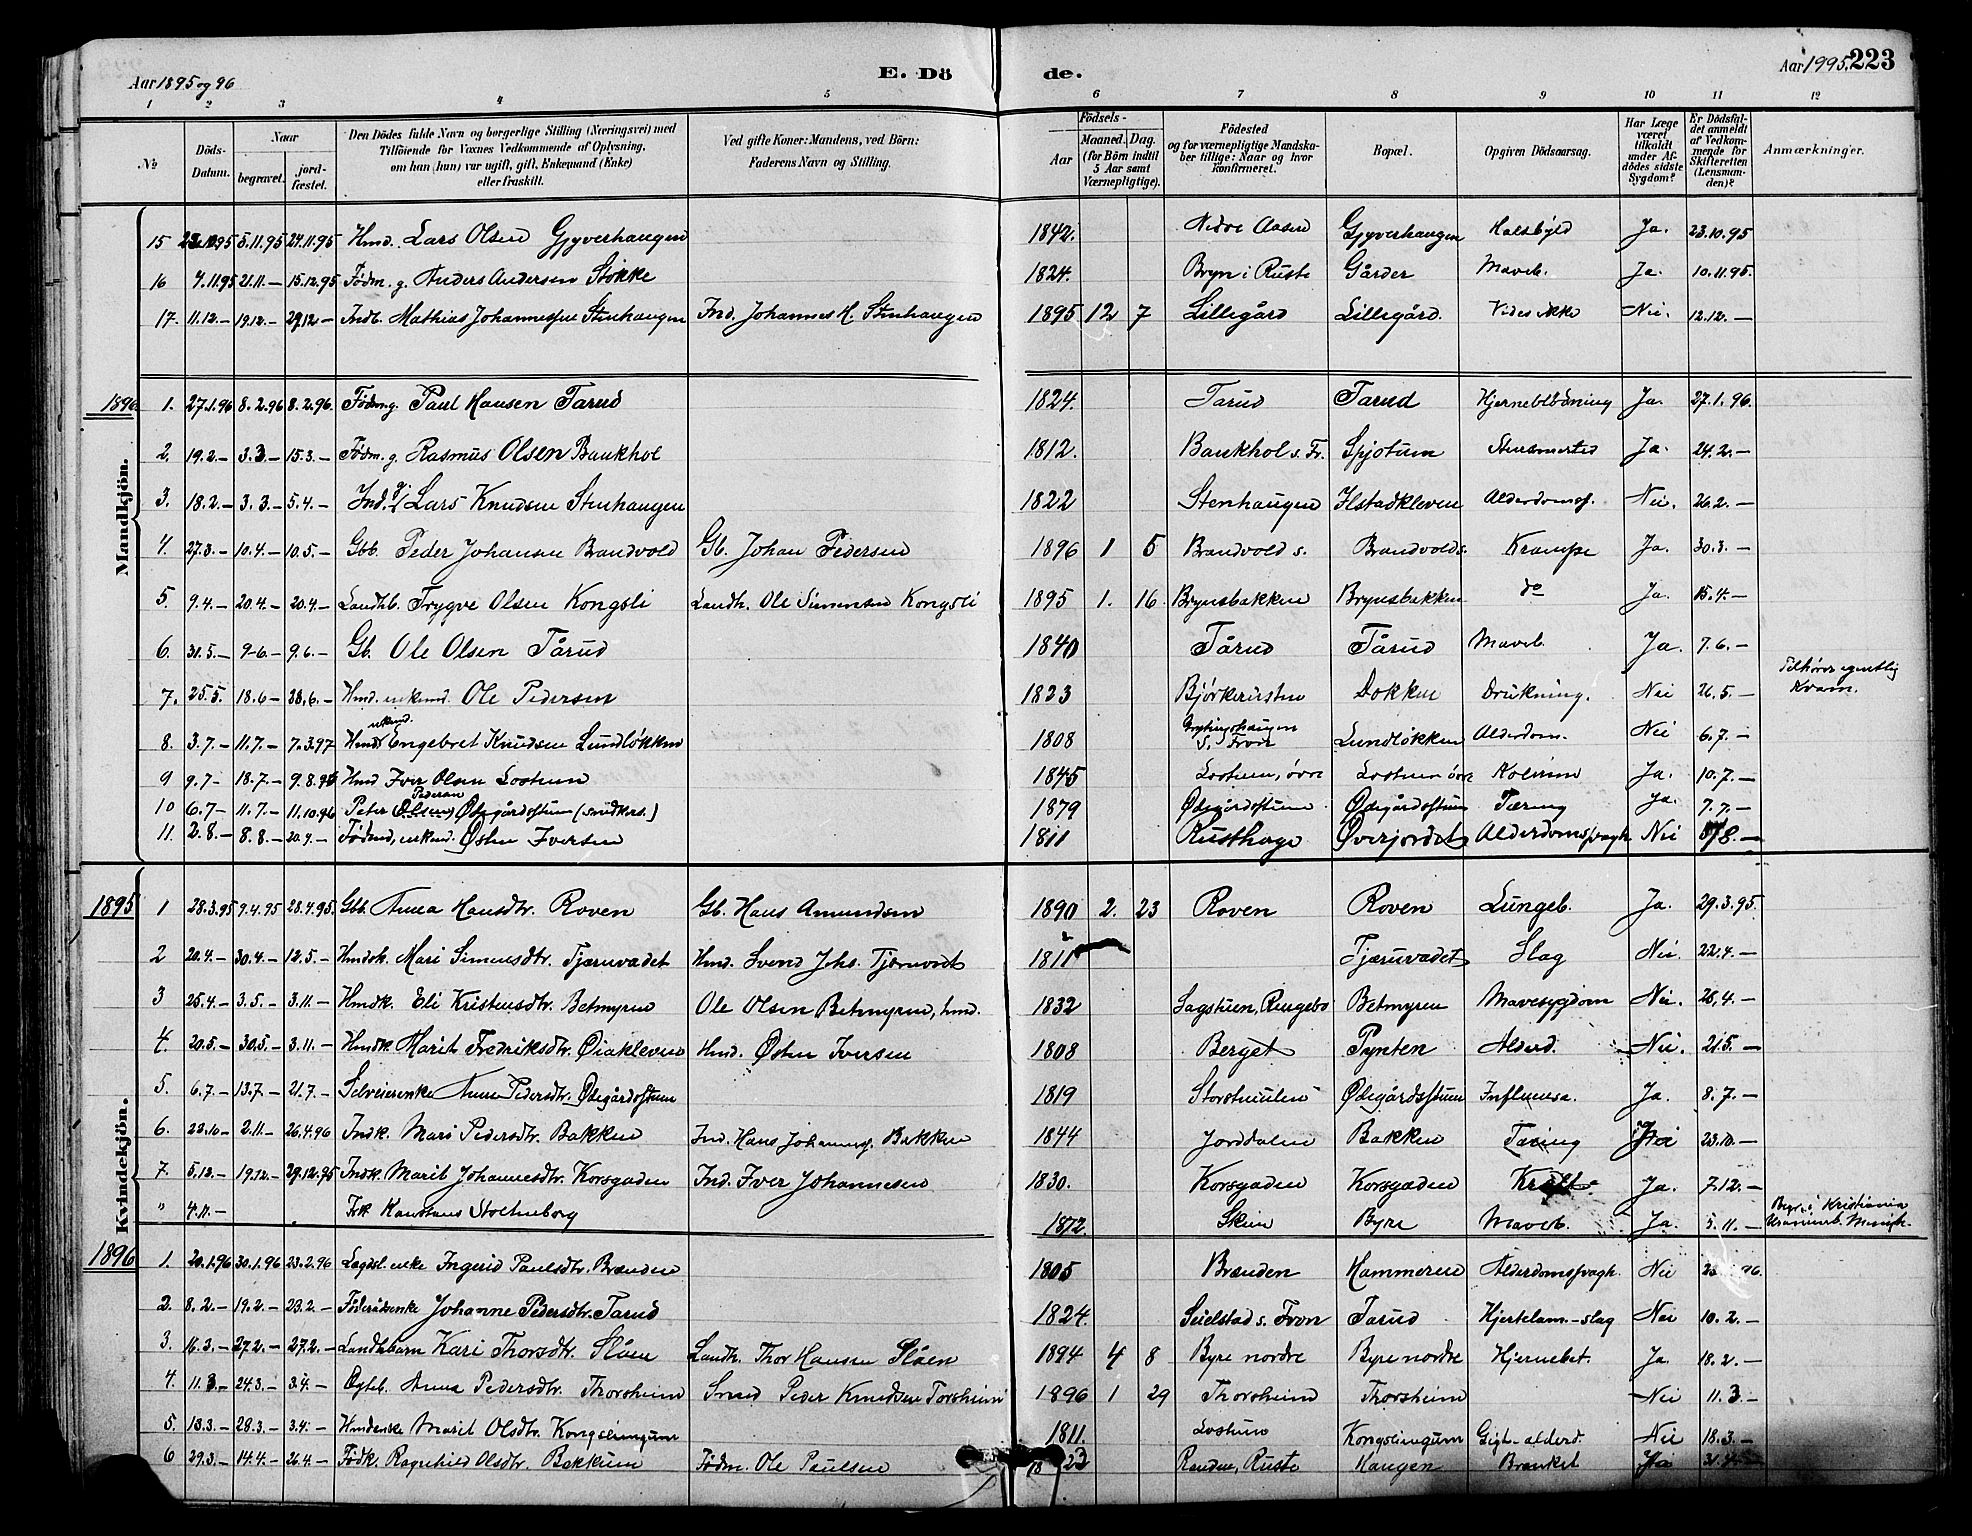 Aar 1895 og 96 E. Dö de. Aar 1995. 223
1 2 3 4 5 6 7 8 9 10 11 12
№ Döds-Datum. Naar begravet. jordfæstet. Den Dödes fulde Navn og borgerlige Stilling (Næringsvei) med Tilföiende for Voxnes Vedkommende af Oplysning, om han (hun) var ugift, gift, Enkemand (Enke) eller fraskilt. Ved gifte Koner: Mandens, ved Börn: Faderens Navn og Stilling. Födsels- Aar Maaned. Dag. (for Börn indtil 5 Aar samt Værnepligtige). Födested og for værnepligtige Mandskaber tillige: Naar og hvor konfirmeret. Bopæl. Opgiven Dödsaarsag. Har Læge været tilkaldt under Afdödes sidste Sygdom? Er Dödsfaldet anmeldt af Vedkommende for Skifteretten (Lensmanden)? Anmærkninger.
Mandkjön.
15 23.10.95 5.11.95 24.11.95 Hmd. Lars Olsen Gjyverhaugen 1842. Nedre Aasen Gjyverhaugen Halsbyld Ja. 23.10.95
16 4.11.95 21.11.— 15.12.95 Födm. g. Anders Andersen Stökke 1824. Bryn i Ruste Gårder Maveb. Ja. 10.11.95.
17. 11.12.— 19.12.— 29.12— Indb. Mathias Johannesen Stenhaugen Ind. Johannes H. Stenhaugen 1895 12 7 Lillegård Lillegård. Vides ikke Nei. 12.12.—
1896 1. 27.1.96 8.2.96 8.2.96. Födm g. Paul Hansen Tarud 1824. Tarud Tarud Hjerneblödning Ja. 27.1.96.
2. 19.2.— 3.3.— 15.3.— Födm. g. Rasmus Olsen Baukhol 1812. Baukhol s. Fr. Spjotum Ja. 24.2.—
3. 18.2.— 3.3.— 5.4.— Ind. g. Lars Knudsen Stenhaugen 1822 Stenhaugen Ilstadkleven Alderdomss. Nei. 26.2.—
4. 27.3.— 10.4.— 10.5.— Gbb. Peder Johansen Brandvold Gb. Johan Pedersen 1896 1 5 Brandvold s. Brandvold s. Krampe Ja. 30.3.—
5. 9.4.— 20.4.— 20.4.— Landhb. Trygve Olsen Kongsli Landh. Ole Simensen Kongsli 1895 1. 16 Brynsbakken Brynsbakken do Ja. 15.4.—
6. 31.5.— 9.6.— 9.6.— Gb. Ole Olsen Tårud 1840 Tårud Tårud Maveb. Ja. 7.6.—
7. 25.5. 18.6.— 28.6.— Hmd. enkemd. Ole Pedersen 1823 Bjørkerusten Dokken Drukning. Nei 26.5.— Tilhörer egentlig Kvam.
8. 3.7.— 11.7.— 7.3.97 Hmd enkmd. Engebret Knudsen Lundløkken 1808 Grytingshaugen S. Fron Lundløkken Alderdom. Nei 6.7.—
9 9.7— 18.7.— 9.8.96 Hmd Iver Olsen Lostuen 1845 Lostuen, övre Lostuen övre Ja. 10.7.—
10 6.7— 11.7.— 11.10.96 Peter (Olsen) Pedersen Ødegårdsstuen (snedkers.) 1879 Ødegårdsstuen Ødegårdsstuen Tæring Ja. 7.7.—
11. 2.8.— 8.8.— 20.9.— Födmd, enkemd. Østen Iversen 1811 Rusthage Överjordet Alderdomssvagh. Nei 8.—
Kvindekjön.
1895 1 28.3.95 9.4.95 28.4.95. Gbb. Anna Hansdtr. Roven Gb. Hans Amundsen 1890 2. 23 Roven Roven Lungeb. Ja. 29.3.95.
2 20.4.— 30.4.— 12.5.— Hmdsk. Mari Simensdtr. Tjærnvadet Hmd. Svend Johs. Tjærnvadet 1811 Tjærnvadet Slag Nei. 22.4.—
3 25.4.— 3.5.— 3.11.— Hmdk. Eli Kristensdtr. Betmyren Ole Olsen Betmyren, hmd. 1832 Sagstuen, Ringebo Betmyren Mavesygdom Nei. 26.4.—
4. 20.5.— 30.5.— 3.11.— Hmdk. Marit Fredriksdtr. Øiakleven Hmd. Østen Iversen 1808 Berget Pynten Alderd. Nei. 21.5.—
5. 6.7.— 13.7.— 21.7.— Selveierenke Anne Pedersdtr. Ødegårdsstuen 1819 Ødegårdsstuen Influensa. Ja. 8.7.—
6. 22.10— 2.11.— 26.4.96 Indk. Mari Pedersdtr. Bakken Ind. Hans Johannes. Bakken 1844 Jorddalen Bakken Tæring Nei 23.10.—
7. 5.12.— 19.12.— 29.12.95 Indk. Marit Johannesdtr. Korsgaden Ind. Iver Johannesen 1830. Korsgaden Korsgaden Kræft Ja. 7.12.—
" 4.11.— Frk Konstans Stoltenberg 1872. Skien Byre Maveb. Ja. 5.11.— Kristiania
1896 1. 20.1.96 30.1.96 23.2.96 Lægdsl. enke Ingerid Paulsdtr. Brænden 1805 Brænden Hammeren Alderdomssvagh. Nei 96.
2. 8.2.— 19.2.— 23.2.— Föderådsenke Johanne Pedersdtr. Tarud 1824. Seielstad s. Fron Tarud Hjertelam-slag Nei 10.2.—
3. 16.3.— 27.2.— 27.2.— Landhbarn Kari Thorsdtr. Slåen Landh. Thor Hansen Slåen 1894 4 8 Byre nordre Byre nordre Hjernebet. Ja. 18.2.—
4. 11.3.— 24.3.— 3.4.— Anna Pedersdtr. Thorsheim Smed Peder Knudsen Torsheim 1896 1 29 Thorsheim Thorsheim Nei 11.3.—
5. 13.3.— 28.3.— 3.4.— Hmdenke Marit Olsdtr. Kongsliengum 1811. Lostuen Kongsliengum Gigt-alderd. Nei 18.3.—
6 29.3.— 14.4.— 26.4.— Födk. Ragnhild Olsdtr. Bakkum Födm. Ole Paulsen 1823 Randen, Ruste Haugen Ja